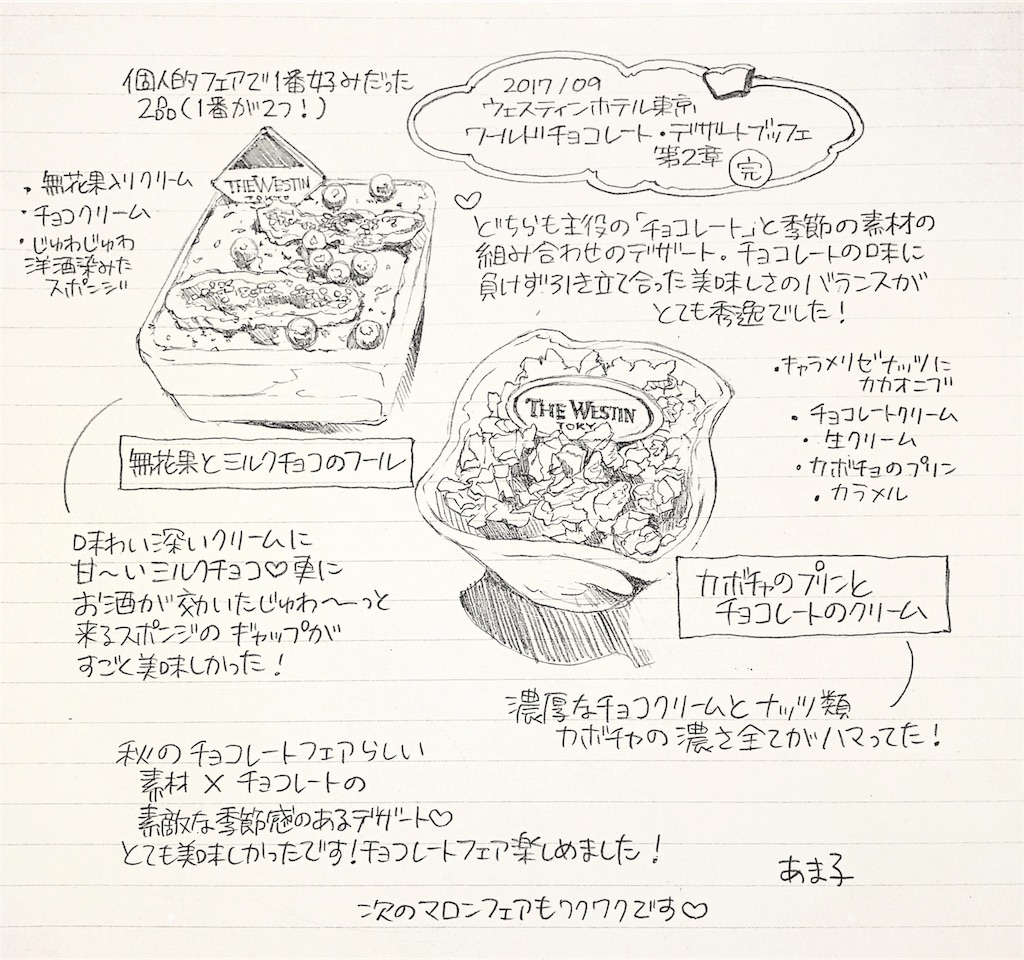 個人的フェアで1番好みだった
2品(1番が2つ!)
2017/09
ウェスティンホテル東京
ワールドチョコレート・デザートブッフェ
第2章 完
・無花果入りクリーム
・チョコクリーム
・じゅわじゅわ
洋酒染みた
スポンジ
THE WESTIN
TOKYO
♡
どちらも主役の「チョコレート」と季節の素材の
組み合わせのデザート。チョコレートの味に
負けず引き立て合った美味しさのバランスが
とても秀逸でした!
無花果とミルクチョコのフール
THE WESTIN
TOKY
・キャラメリゼナッツに
カカオニブ
・チョコレートクリーム
・生クリーム
・カボチョのプリン
・カラメル
味わい深いクリームに
甘〜いミルクチョコ♡更に
お酒が効いたじゅわ〜〜っと
来るスポンジのギャップが
すごと美味しかった!
カボチャのプリンと
チョコレートのクリーム
濃厚なチョコクリームとナッツ類
カボチャの濃さ全てがハマってた!
秋のチョコレートフェアらしい
素材×チョコレートの
素敵な季節感のあるデザート♡
とても美味しかったです!チョコレートフェア楽しめました!
あま子
次のマロンフェアもワクワクです♡